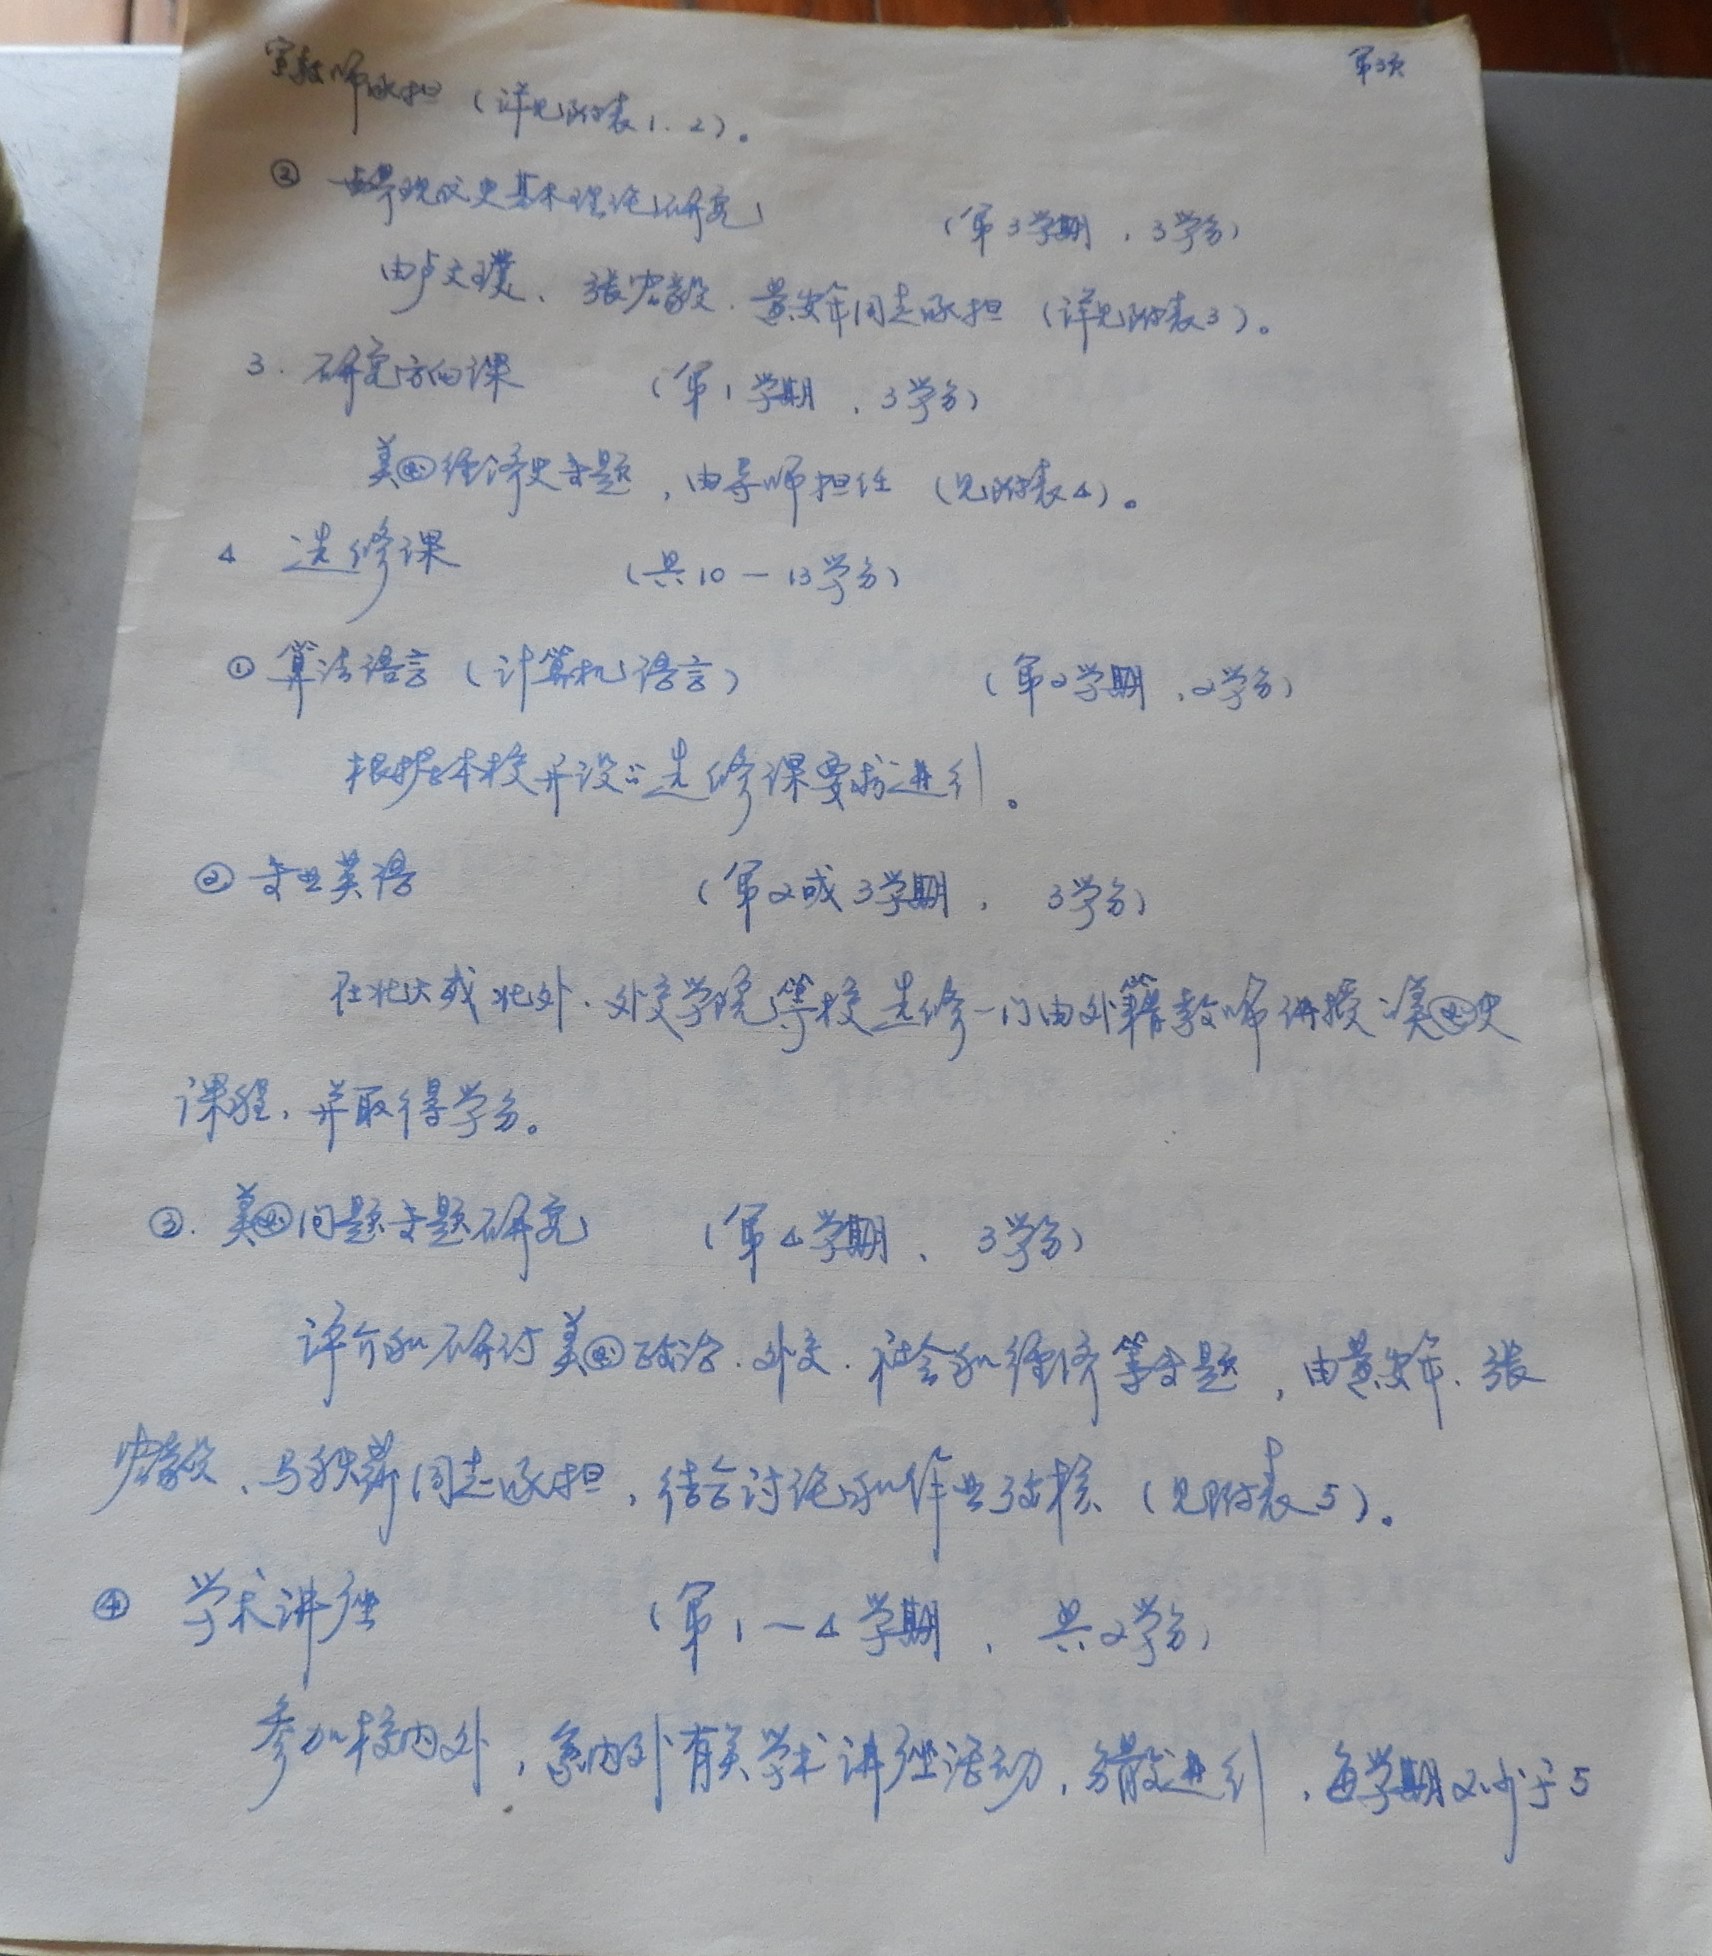 第3页
室教师承担（详见附表1.2）。
② 世界现代史基本理论研究 （第3学期，3学分）
由卢文璞、张宏毅、黄安年同志承担（详见附表3）。
3. 研究方向课 （第1学期，3学分）
美国经济史专题，由导师担任（见附表4）。
4 选修课 （共10－13学分）
① 算法语言（计算机语言） （第2学期，2学分）
根据本校开设的选修课要求进行。
② 专业英语 （第2或3学期， 3学分）
在北大或北外、外交学院等校选修一门由外籍教师讲授的美国史
课程，并取得学分。
③. 美国问题专题研究 （第4学期、 3学分）
评介和研讨美国政治、外交、社会和经济等专题，由黄安年、张
宏毅、马秋莎同志承担，结合讨论和作业考核（见附表5）。
④ 学术讲座 （第1－4学期， 共2学分）
参加校内外，系内外有关学术讲座活动，分散进行，每学期不少于5